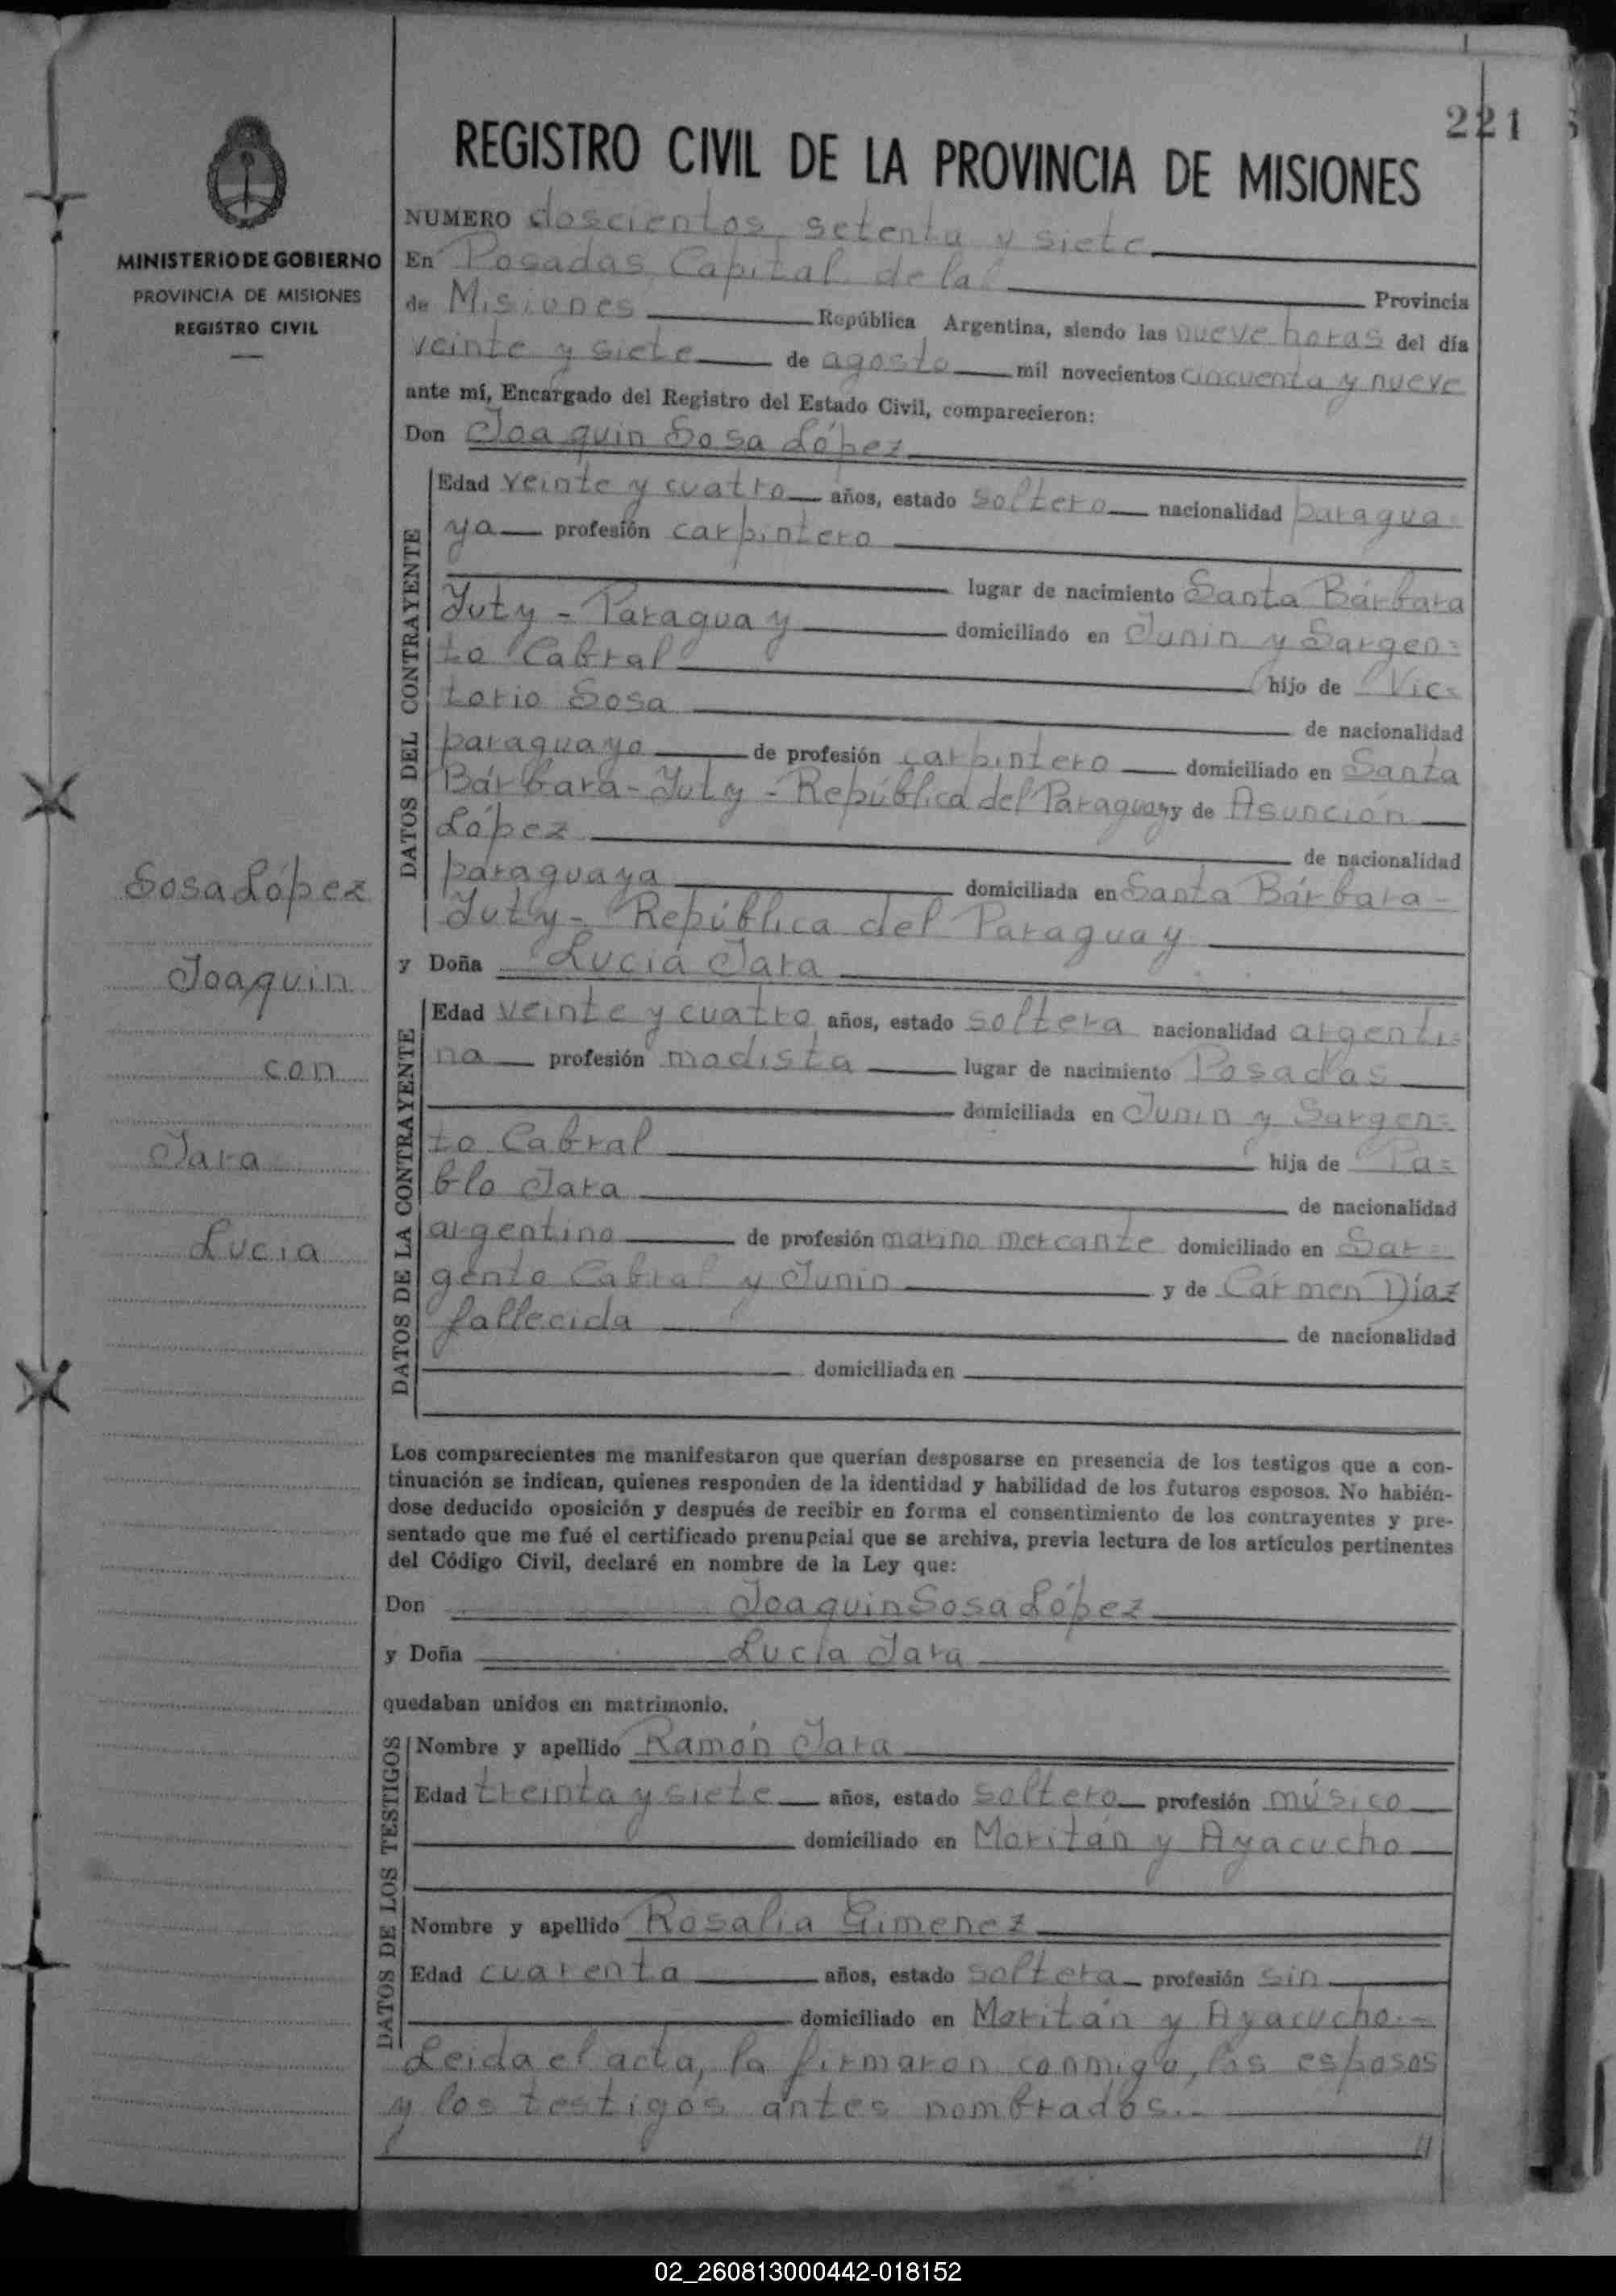 221
REGISTRO CIVIL DE LA PROVINCIA DE MISIONES
MINISTERIO DE GOBIERNO
PROVINCIA DE MISIONES
REGISTRO CIVIL
NUMERO doscientos setenta y siete
En Posadas, Capital de la Provincia
de Misiones República Argentina, siendo las nueve horas del día
veinte y siete de agosto mil novecientos cincuenta y nueve
ante mí, Encargado del Registro del Estado Civil, comparecieron:
Don Joaquin Sosa López
DATOS DEL CONTRAYENTE
Edad veinte y cuatro años, estado soltero nacionalidad paragua
ya profesión carpintero
lugar de nacimiento Santa Bárbara
Yuty - Paraguay domiciliado en Junin y Sargen=
to Cabral hijo de Vic=
torio Sosa de nacionalidad
paraguayo de profesión carpintero domiciliado en Santa
Bárbara - Yuty - República del Paraguay y de Asunción
López de nacionalidad
paraguaya domiciliada en Santa Bárbara -
Yuty - República del Paraguay
y Doña Lucía Jara
DATOS DE LA CONTRAYENTE
Edad veinte y cuatro años, estado soltera nacionalidad argenti=
na profesión modista lugar de nacimiento Posadas
domiciliada en Junin y Sargen=
to Cabral hija de Pa=
blo Jara de nacionalidad
argentino de profesión marino mercante domiciliado en Sar=
gento Cabral y Junin y de Cármen Díaz
fallecida de nacionalidad
domiciliada en
Sosa López
Joaquin
con
Jara
Lucia
Los comparecientes me manifestaron que querían desposarse en presencia de los testigos que a con-
tinuación se indican, quienes responden de la identidad y habilidad de los futuros esposos. No habién-
dose deducido oposición y después de recibir en forma el consentimiento de los contrayentes y pre-
sentado que me fué el certificado prenupcial que se archiva, previa lectura de los artículos pertinentes
del Código Civil, declaré en nombre de la Ley que:
Don Joaquin Sosa López
y Doña Lucía Jara
quedaban unidos en matrimonio.
DATOS DE LOS TESTIGOS
Nombre y apellido Ramón Jara
Edad treinta y siete años, estado soltero profesión músico
domiciliado en Moritán y Ayacucho
Nombre y apellido Rosalia Gimenez
Edad cuarenta años, estado soltera profesión sin
domiciliado en Moritán y Ayacucho.-
Leida el acta, la firmaron conmigo, los esposos
y los testigos antes nombrados.-
02_260813000442-018152